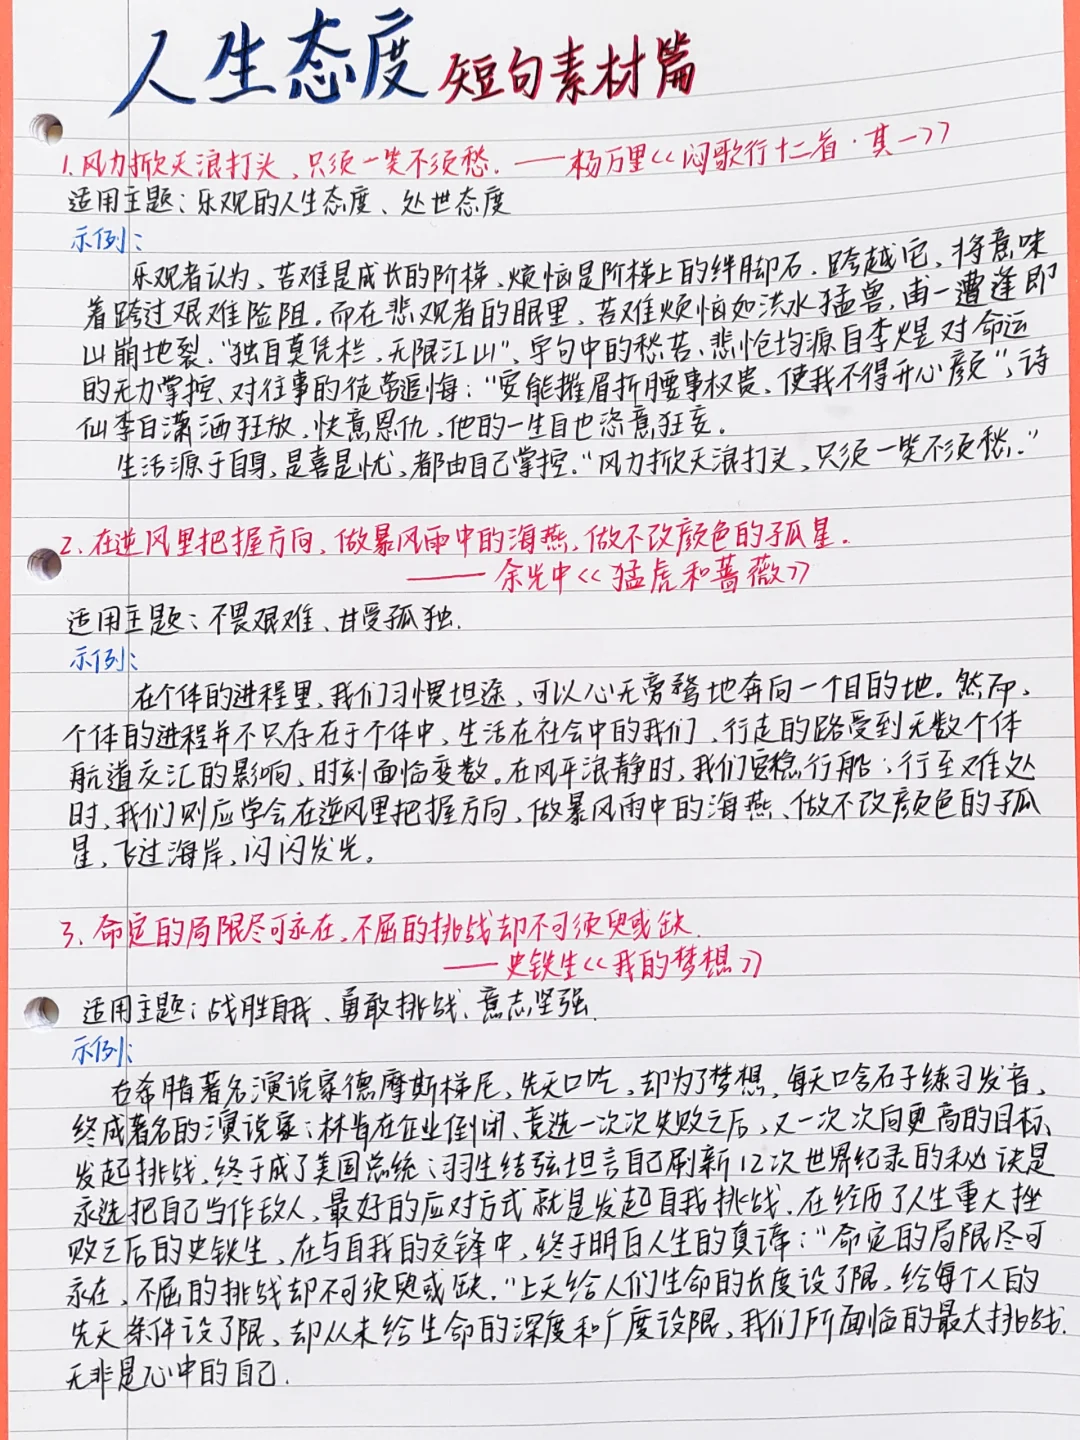 人生态度 短句素材篇
1.风力掀天浪打头,只须一笑不须愁.——杨万里《闷歌行十二首·其一》
适用主题:乐观的人生态度、处世态度
示例:
乐观者认为,苦难是成长的阶梯,烦恼是阶梯上的绊脚石,跨越它,将意味
着跨过艰难险阻。而在悲观者的眼里,苦难烦恼如洪水猛兽,甫一遭逢即
山崩地裂。"独自莫凭栏,无限江山",字句中的愁苦、悲怆均源自李煜对命运
的无力掌控、对往事的徒劳追悔;"安能摧眉折腰事权贵,使我不得开心颜",诗
仙李白潇洒狂放,快意恩仇,他的一生自也恣意狂妄。
生活源于自身,是喜是忧,都由自己掌控。"风力掀天浪打头,只须一笑不须愁."
2.在逆风里把握方向,做暴风雨中的海燕,做不改颜色的孤星.
——余光中《猛虎和蔷薇》
适用主题:不畏艰难、甘受孤独.
示例:
在个体的进程里,我们习惯坦途,可以心无旁骛地奔向一个目的地。然而,
个体的进程并不只存在于个体中,生活在社会中的我们,行走的路受到无数个体
航道交汇的影响、时刻面临变数。在风平浪静时,我们安稳行船;行至难处
时,我们则应学会在逆风里把握方向,做暴风雨中的海燕、做不改颜色的孤
星,飞过海岸,闪闪发光。
3.命定的局限尽可永在,不屈的挑战却不可须臾或缺.
——史铁生《我的梦想》
适用主题:战胜自我、勇敢挑战、意志坚强.
示例:
古希腊著名演说家德摩斯梯尼,先天口吃,却为了梦想,每天口含石子练习发音,
终成著名的演说家;林肯在企业倒闭、竞选一次次失败之后,又一次次向更高的目标
发起挑战,终于成了美国总统;羽生结弦坦言自己刷新12次世界纪录的秘诀是
永远把自己当作敌人,最好的应对方式就是发起自我挑战.在经历了人生重大挫
败之后的史铁生,在与自我的交锋中,终于明白人生的真谛:"命定的局限尽可
永在,不屈的挑战却不可须臾或缺."上天给人们生命的长度设了限,给每个人的
先天条件设了限,却从未给生命的深度和广度设限,我们所面临的最大挑战.
无非是心中的自己.